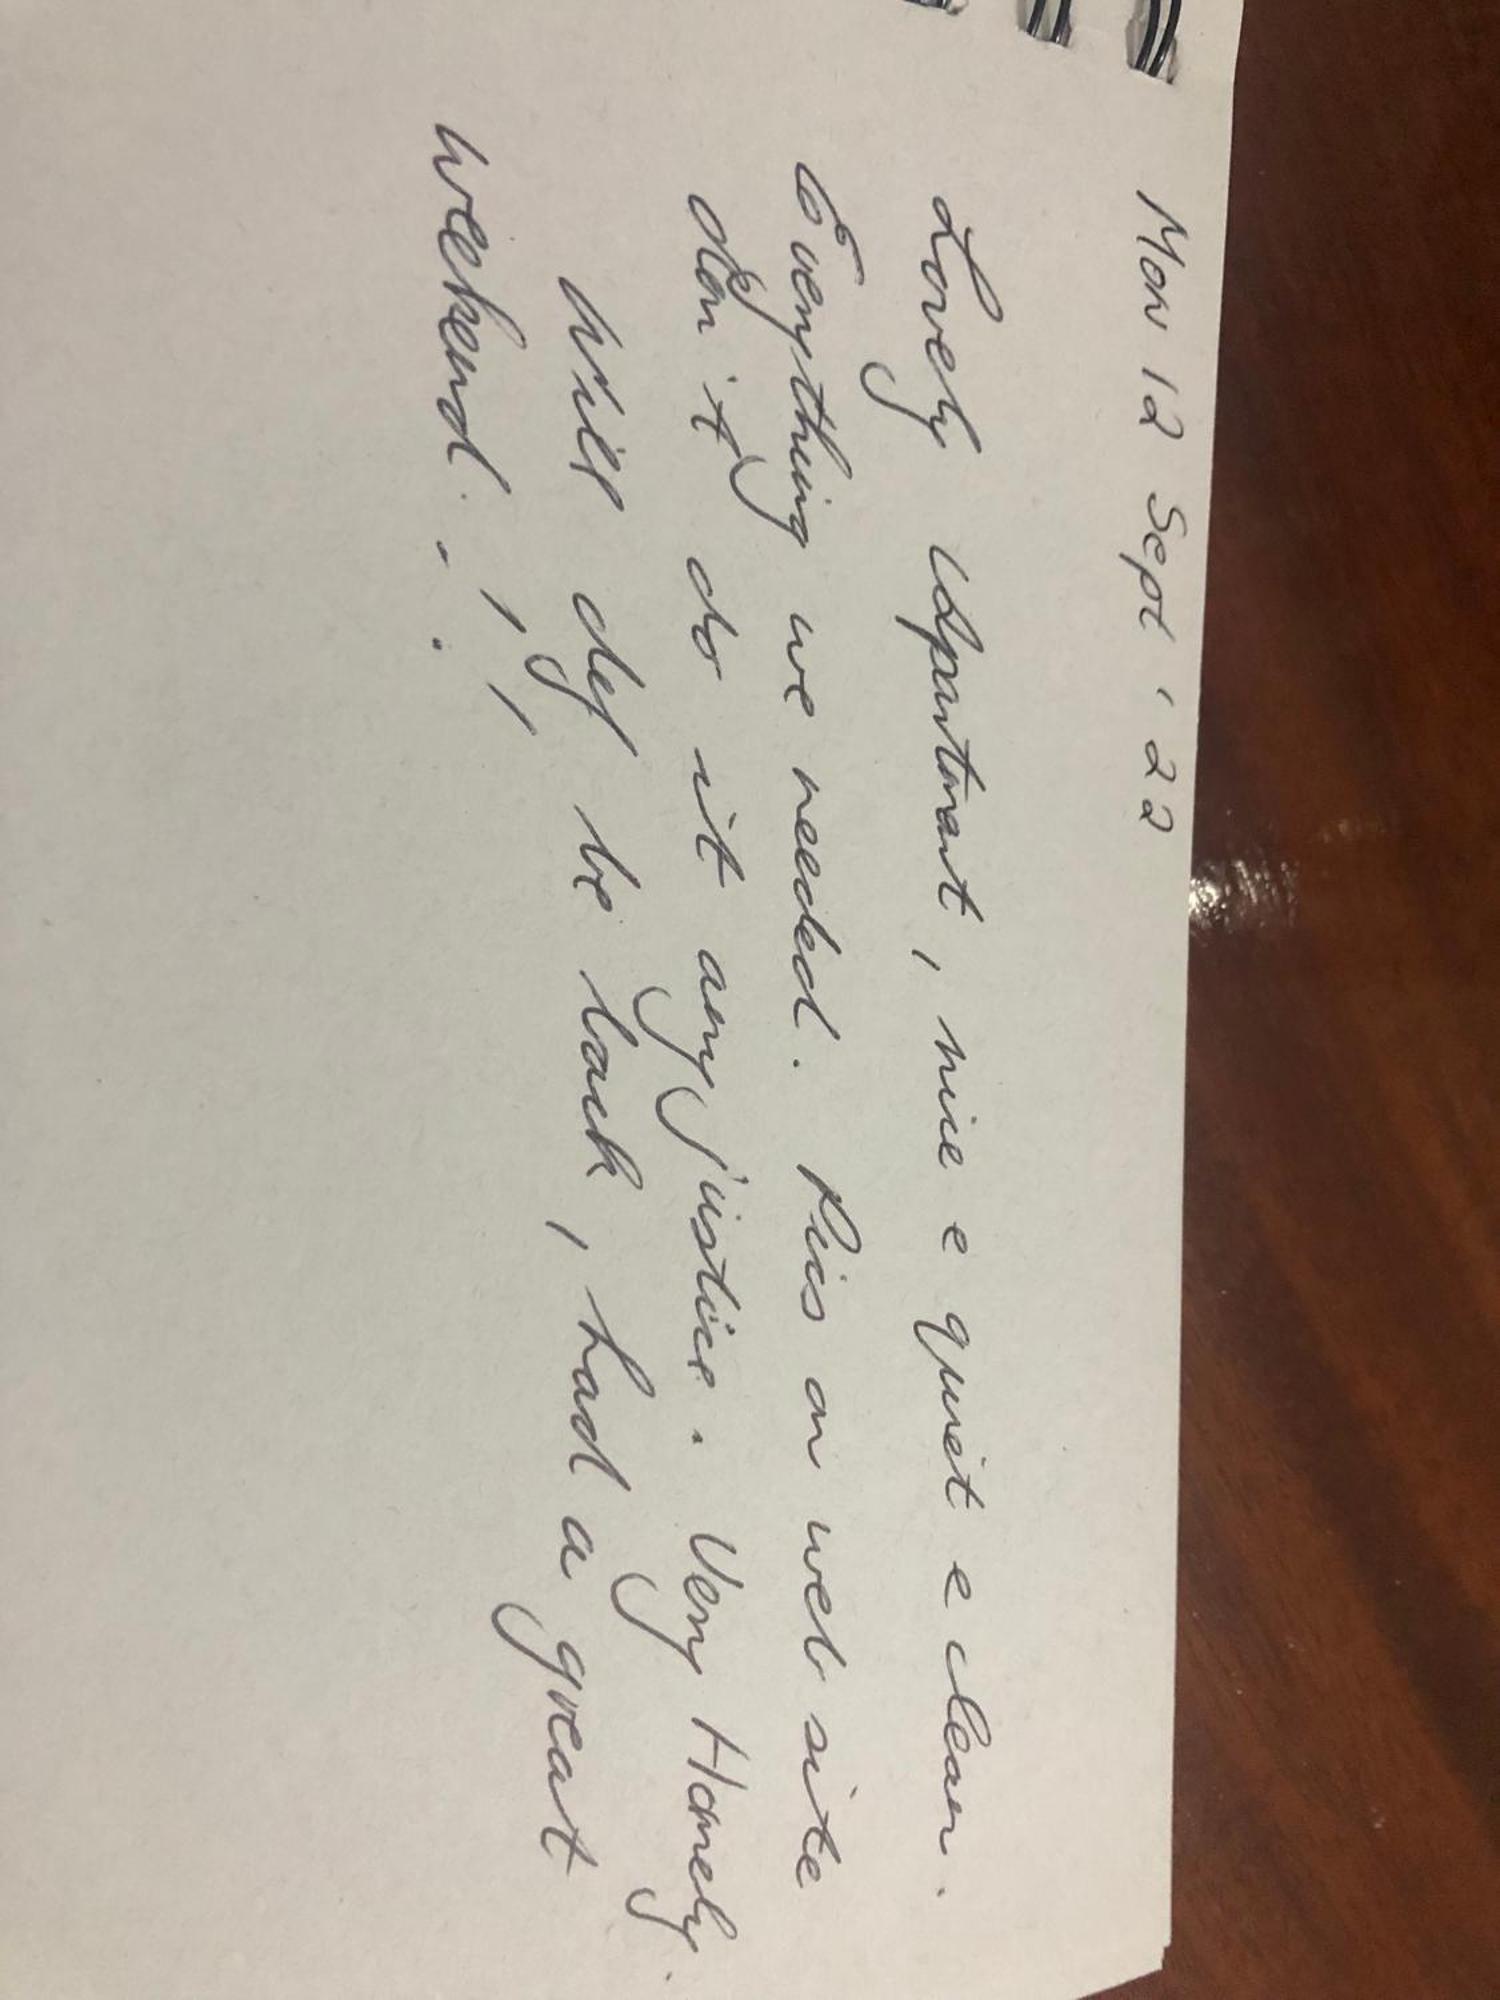 Mon 12 Sept '22
Lovely apartment, nice e quiet e clean.
Everything we needed. Pics on web site
don't do it any justice. Very Homely.
Will def be back, had a great
weekend.!!!